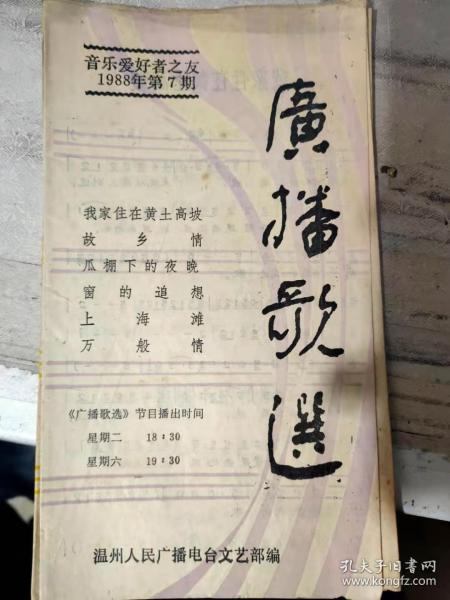 音乐爱好者之友
1988年第7期
廣播歌選
我家住在黄土高坡
故乡情
瓜棚下的夜晚
窗的追想
上海滩
万般情
《广播歌选》节目播出时间
星期二 18:30
星期六 19:30
温州人民广播电台文艺部编
孔夫子旧书网
www.kongfz.com